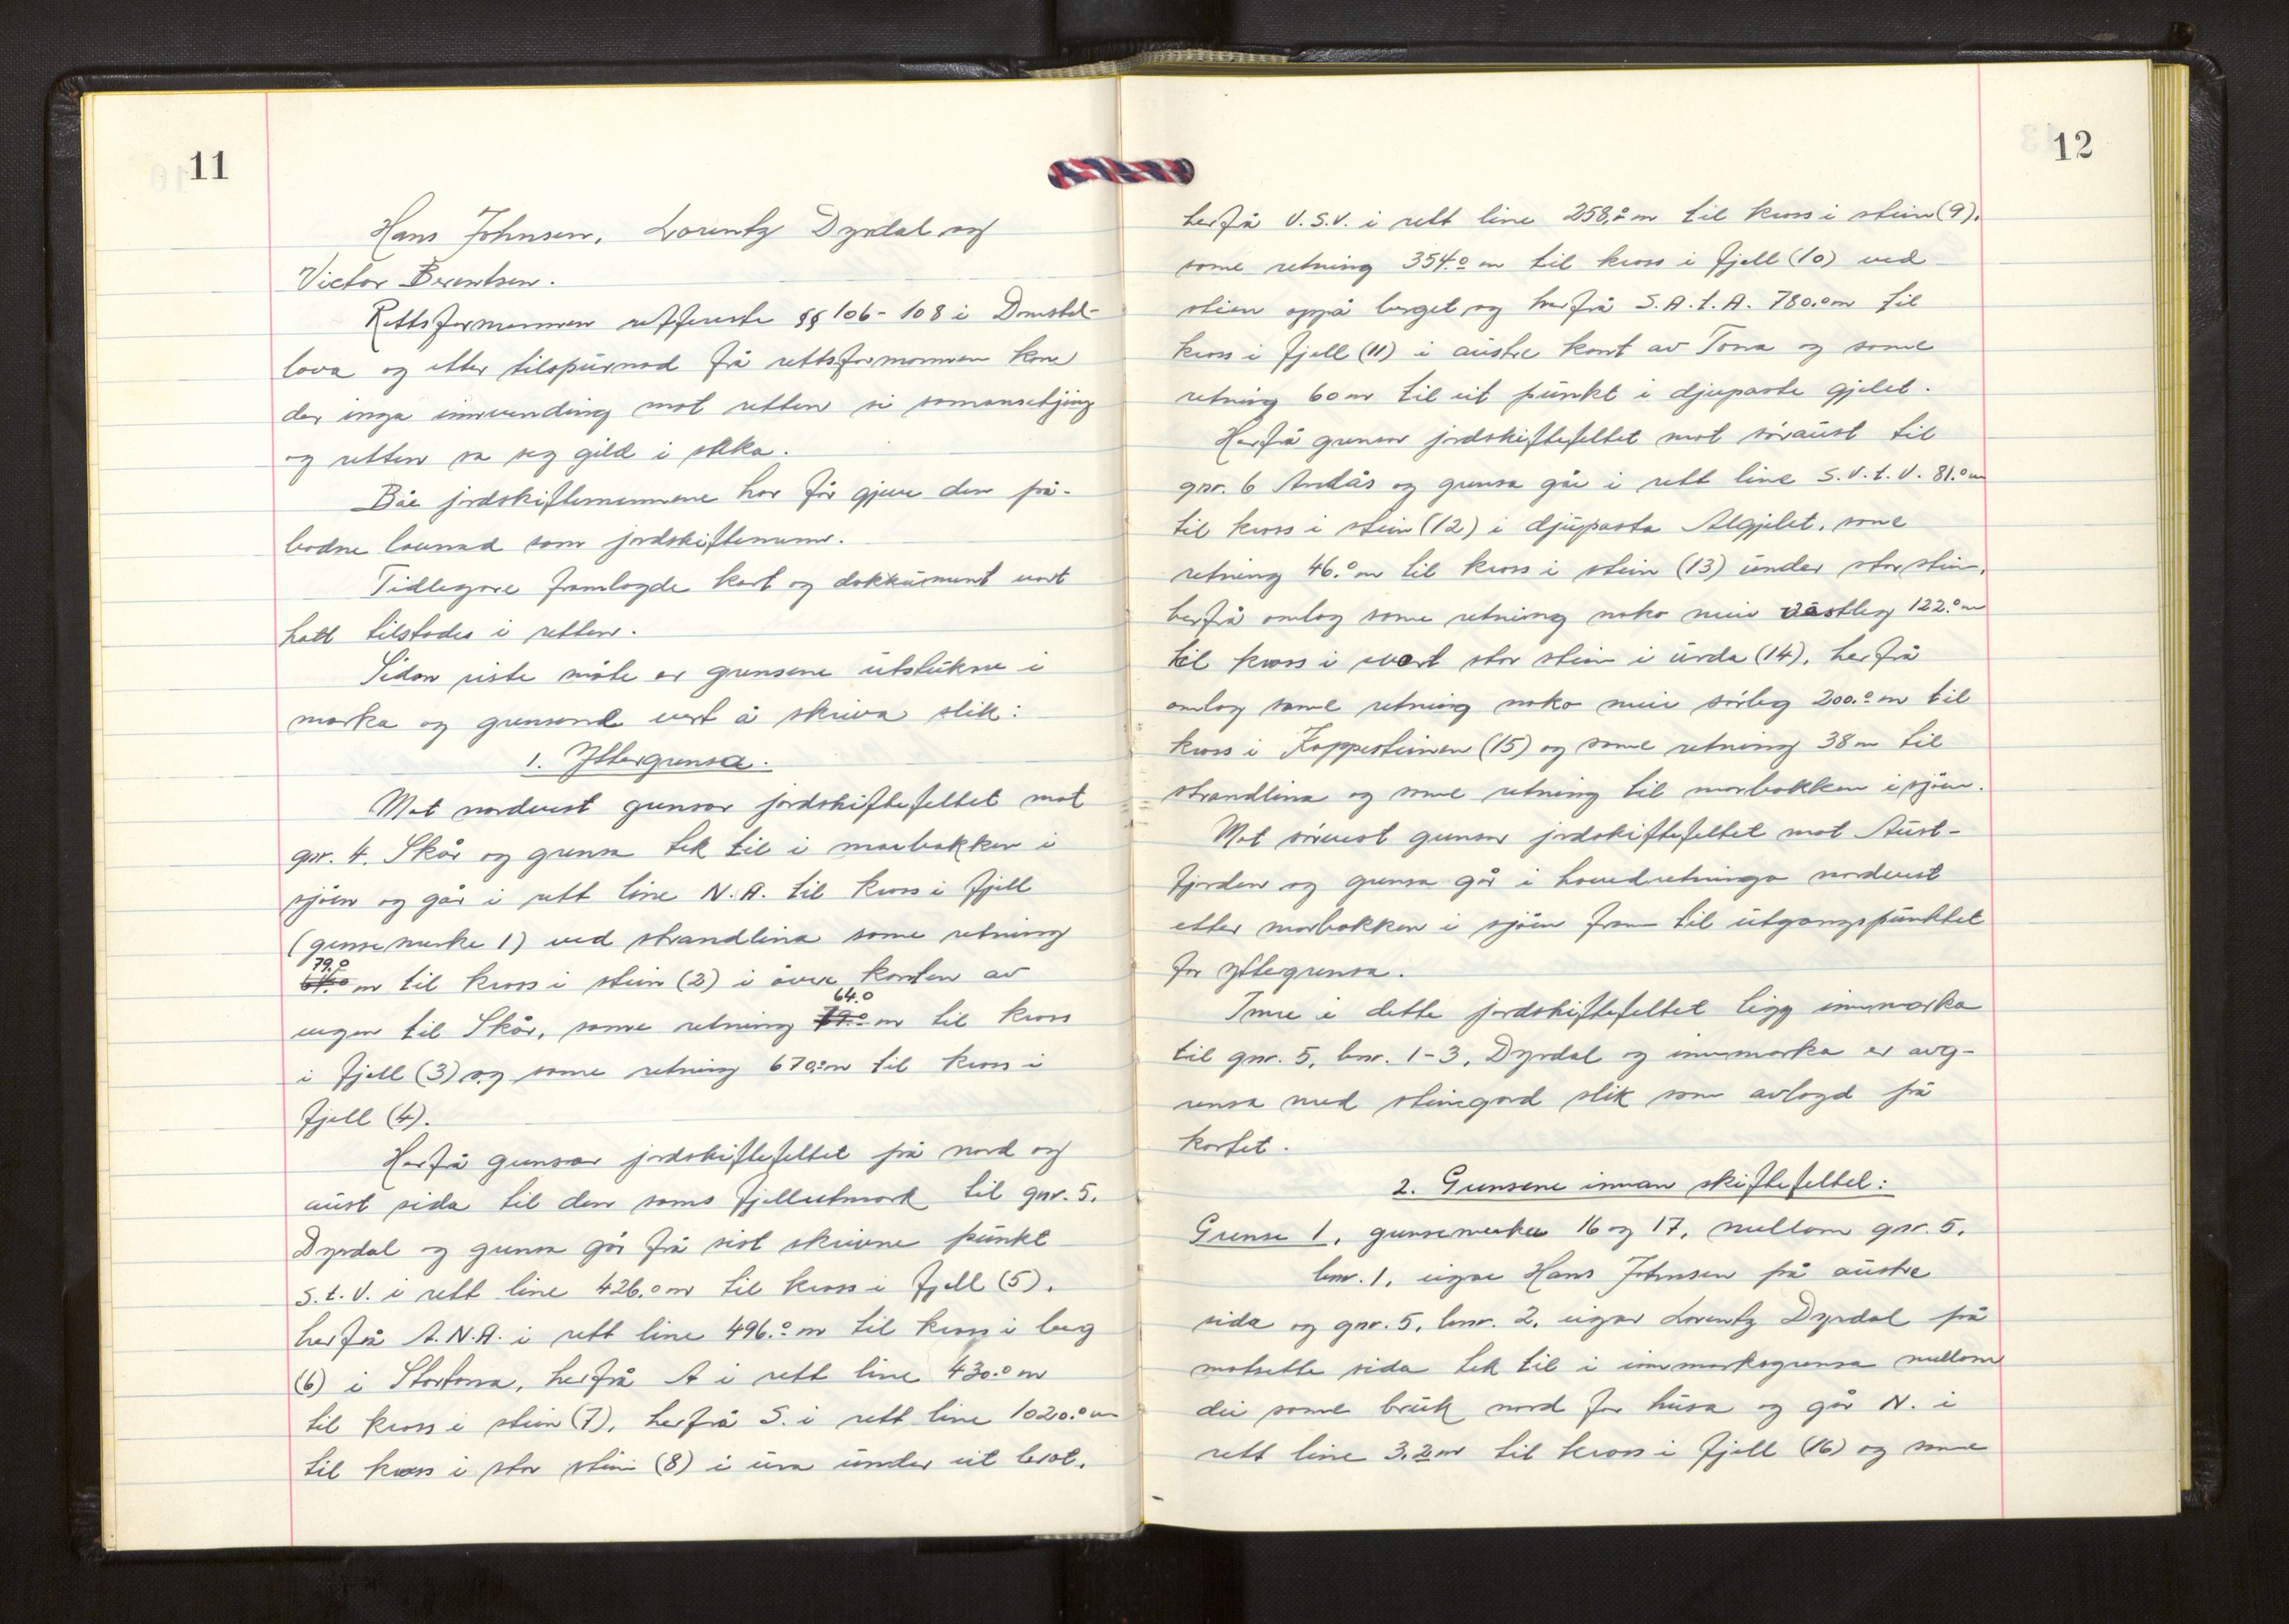 11
Hans Johnsen, Lorentz Dyrdal og
Victor Berentsen.
Rettsformannen refererte §§ 106-108 i Domstol-
lova og etter tilspurnad frå rettsformannen kom
der inga innvending mot retten si samansetjing
og retten sa seg gild i sikka.
Båe jordskiftemennene har før gjeve den på-
bodne lovnad som jordskiftemenn.
Tidlegare framlagde kart og dokkument vart
hatt tilstades i retten.
Sidan siste møte er grensene utstukne i
marka og grensene vert å skriva slik:
1. Yttergrensa.
Mot nordvest grensar jordskiftefeltet mot
gnr. 4. Skår og grensa tek til i marbakken i
sjøen og går i rett line N.A. til kross i fjell
(grensemerke 1) ved strandlina same retning
79.0
64.0 m til kross i stein (2) i øvre kanten av
64.0
vegen til Skår, same retning 79.0 m til kross
i fjell (3) og same retning 670.0 m til kross i
fjell (4).
Herfrå grensar jordskiftefeltet på nord og
aust sida til den sams fjellutmark til gnr. 5.
Dyrdal og grensa går frå sist skrivne punkt
S.t.V. i rett line 426.0 m til kross i fjell (5),
herfrå A.N.A. i rett line 496.0 m til kross i berg
(6) i Stortona, herfrå A i rett line 430.0 m
til kross i stein (7), herfrå S. i rett line 1020.0 m
til kross i stor stein (8) i ura under eit brot,
12
herfrå V.S.V. i rett line 258.0 m til kross i stein (9),
same retning 354.0 m til kross i fjell (10) ved
stien oppå berget og herfrå S.A.t.A. 780.0 m til
kross i fjell (11) i austre kant av Tona og same
retning 60 m til eit punkt i djupaste gjelet.
Herfrå grensar jordskiftefeltet mot søraust til
gnr. 6 Andås og grensa går i rett line S.V.t.V. 81.0 m
til kross i stein (12) i djupasta Algjelet, same
retning 46.0 m til kross i stein (13) under stor stein,
herfrå omlag same retning noko meir västleg 122.0 m
til kross i svart stor stein i urda (14), herfrå
omlag same retning noko meir sørleg 200.0 m til
kross i Koppesteinen (15) og same retning 38 m til
strandlina og same retning til marbakken i sjøen.
Mot sørvest grensar jordskiftefeltet mot Aust-
fjorden og grensa går i hovedretninga nordvest
etter marbakken i sjøen fram til utgangspunktet
for yttergrensa.
Inne i dette jordskiftefeltet ligg innmarka
til gnr. 5, bnr. 1-3, Dyrdal og innmarka er avg-
rensa med steingard slik som avlagd på
kartet.
2. Grensene innan skiftefeltet:
Grense 1, grensemerker 16 og 17, mellom gnr. 5,
bnr. 1, eigar Hans Johnsen på austre
sida og gnr. 5, bnr. 2, eigar Lorentz Dyrdal på
motsette sida tek til i innmarksgrensa mellom
dei same bruk nord for husa og går N. i
rett line 3.2 m til kross i fjell (16) og same